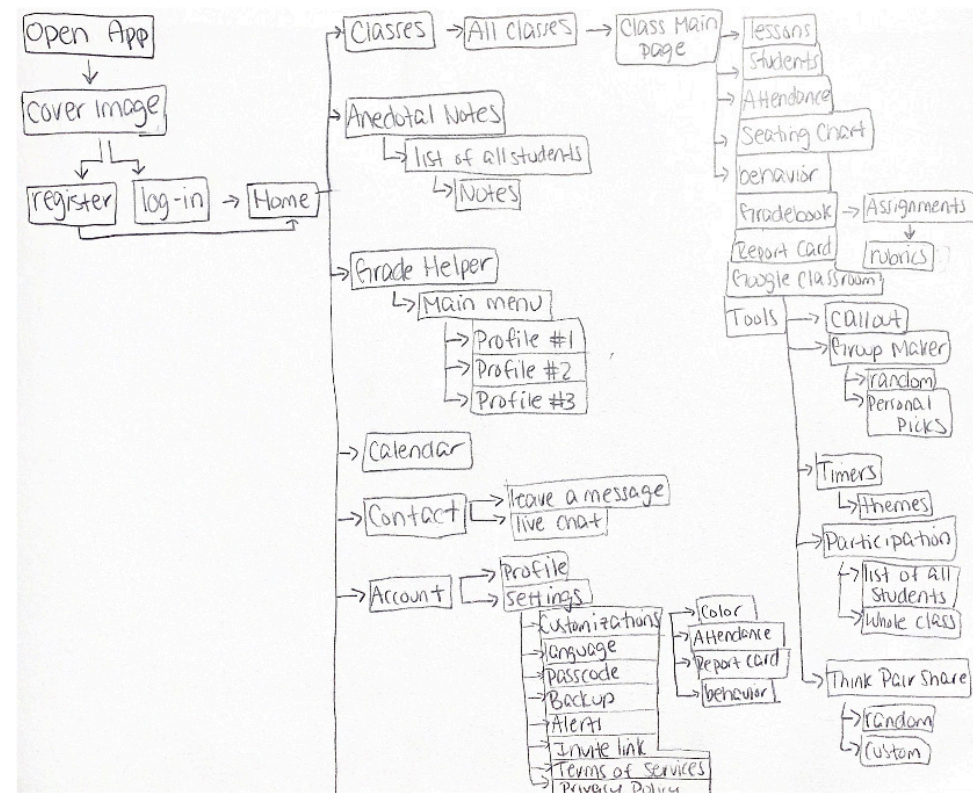 Open App
Cover Image
register
log-in
Home
Classes
All Classes
Class Main
page
lessons
Students
Attendance
Seating Chart
behavior
Gradebook
Assignments
rubrics
Report Card
Google Classroom
Tools
Callout
Group Maker
random
Personal
Picks
Timers
themes
Participation
list of all
Students
Whole class
Think Pair Share
random
Custom
Anedotal Notes
list of all students
Notes
Grade Helper
Main menu
Profile #1
Profile #2
Profile #3
Calendar
Contact
leave a message
live chat
Account
Profile
settings
Customizations
language
passcode
Backup
Alert
Invite link
Terms of services
Privacy Policy
Color
Attendance
Report card
behavior